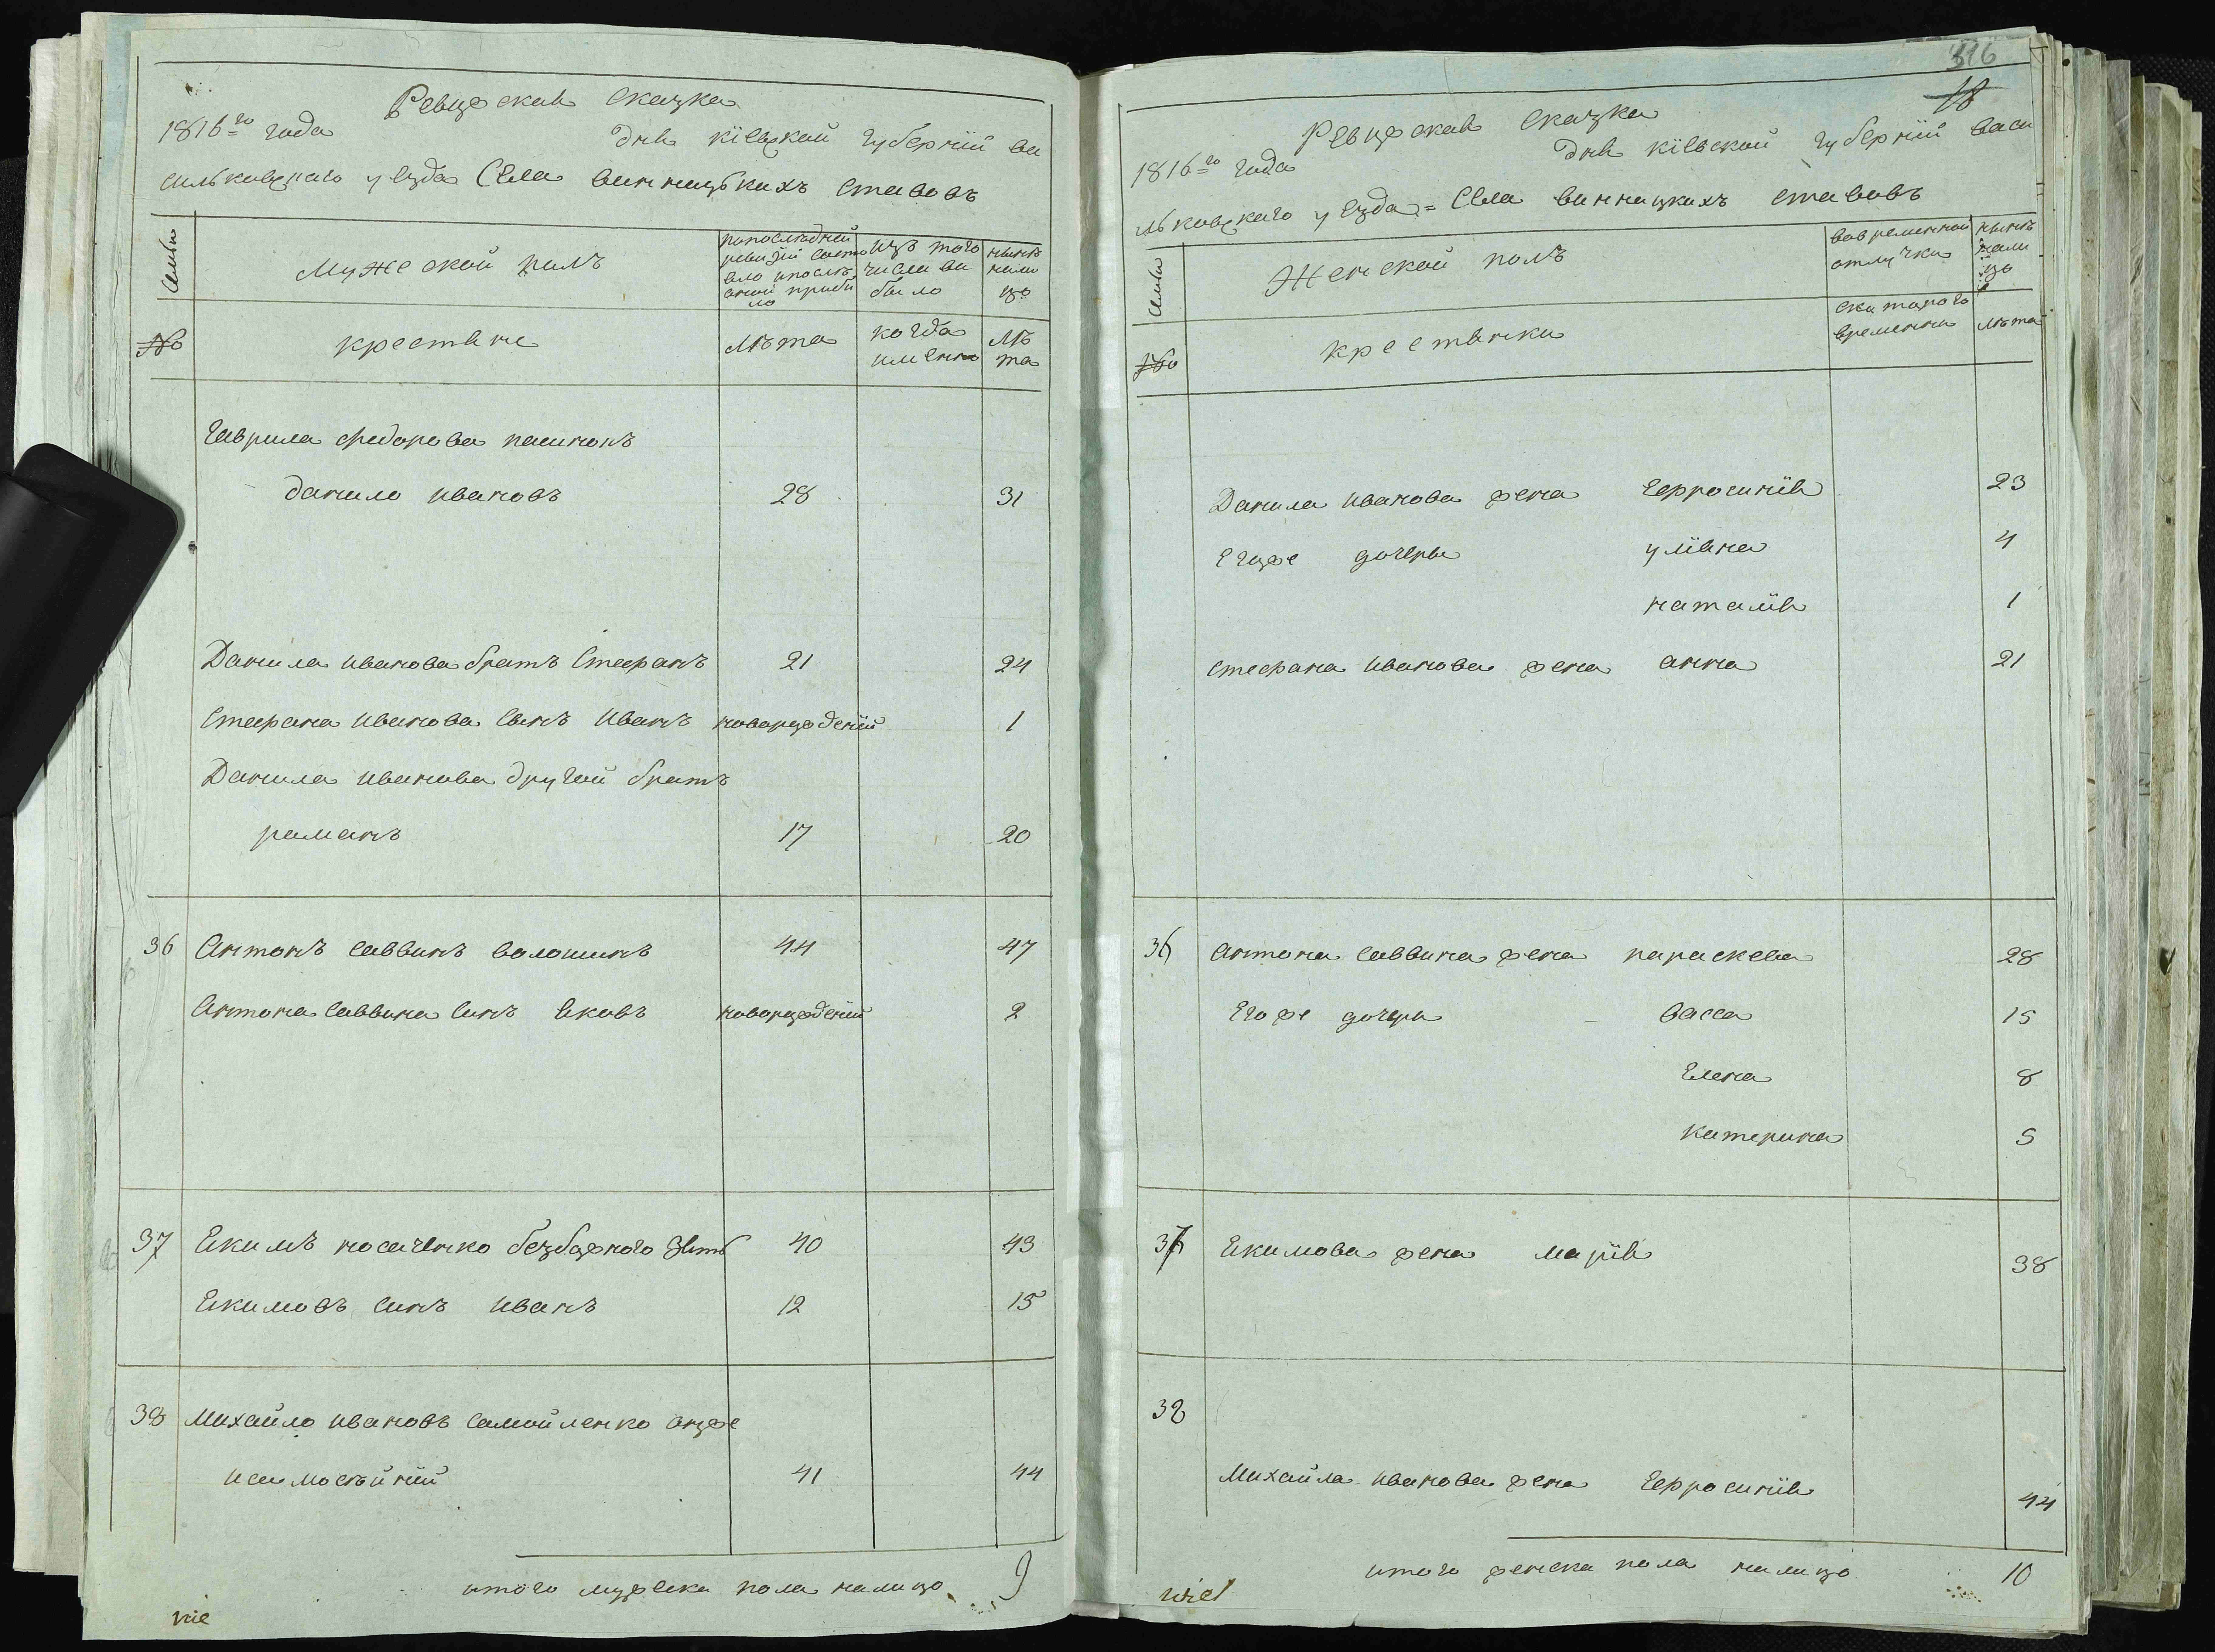 Ревизская сказка
1816го года дня кіевской губерніи ва
сильковскаго уезда Села винницькихъ ставовъ
Семьи
Мужеской полъ
попоследней ревизіи состояло ипосле оной прибыло
изъ того числа выбыло
ныне налицо
№
крестьяне
Лѣта
когда именно
Лѣта
Гаврила федорова пасинокъ
данило ивановъ 28 31
Данила иванова братъ Стефанъ 21 24
Стефана иванова сынъ иванъ новорожденій 1
Данила иванова другой братъ
романъ 17 20
36 Антонъ саввинъ волошинъ 44 47
Антона саввина синъ яковъ новорожденій 2
37 Екимъ носаченко безбажного зять 40 43
Екимовъ синъ иванъ 12 15
38 Михайло ивановъ самойленко онже
41 44
итого мужеска пола налицо 9
316
18
Ревизская сказка
1816го года дня кіевской губерніи васи
льковскаго уезда = Села винницкихъ ставовъ
Семьи
Женской полъ
вовременной отлучки
ныне налицо
№
крестьянки
скитарого времянни
лѣта
Данила иванова жена Ефросинія 23
Егоже дочери уліяна 4
наталія 1
Стефана иванова жена анна 21
36 Антона саввина жена параскева 28
Егоже дочери васса 15
Елена 8
катерина 5
37 Екимова жена марія 38
38
Михайла иванова жена Ефросинія 44
итого женска пола налицо 10